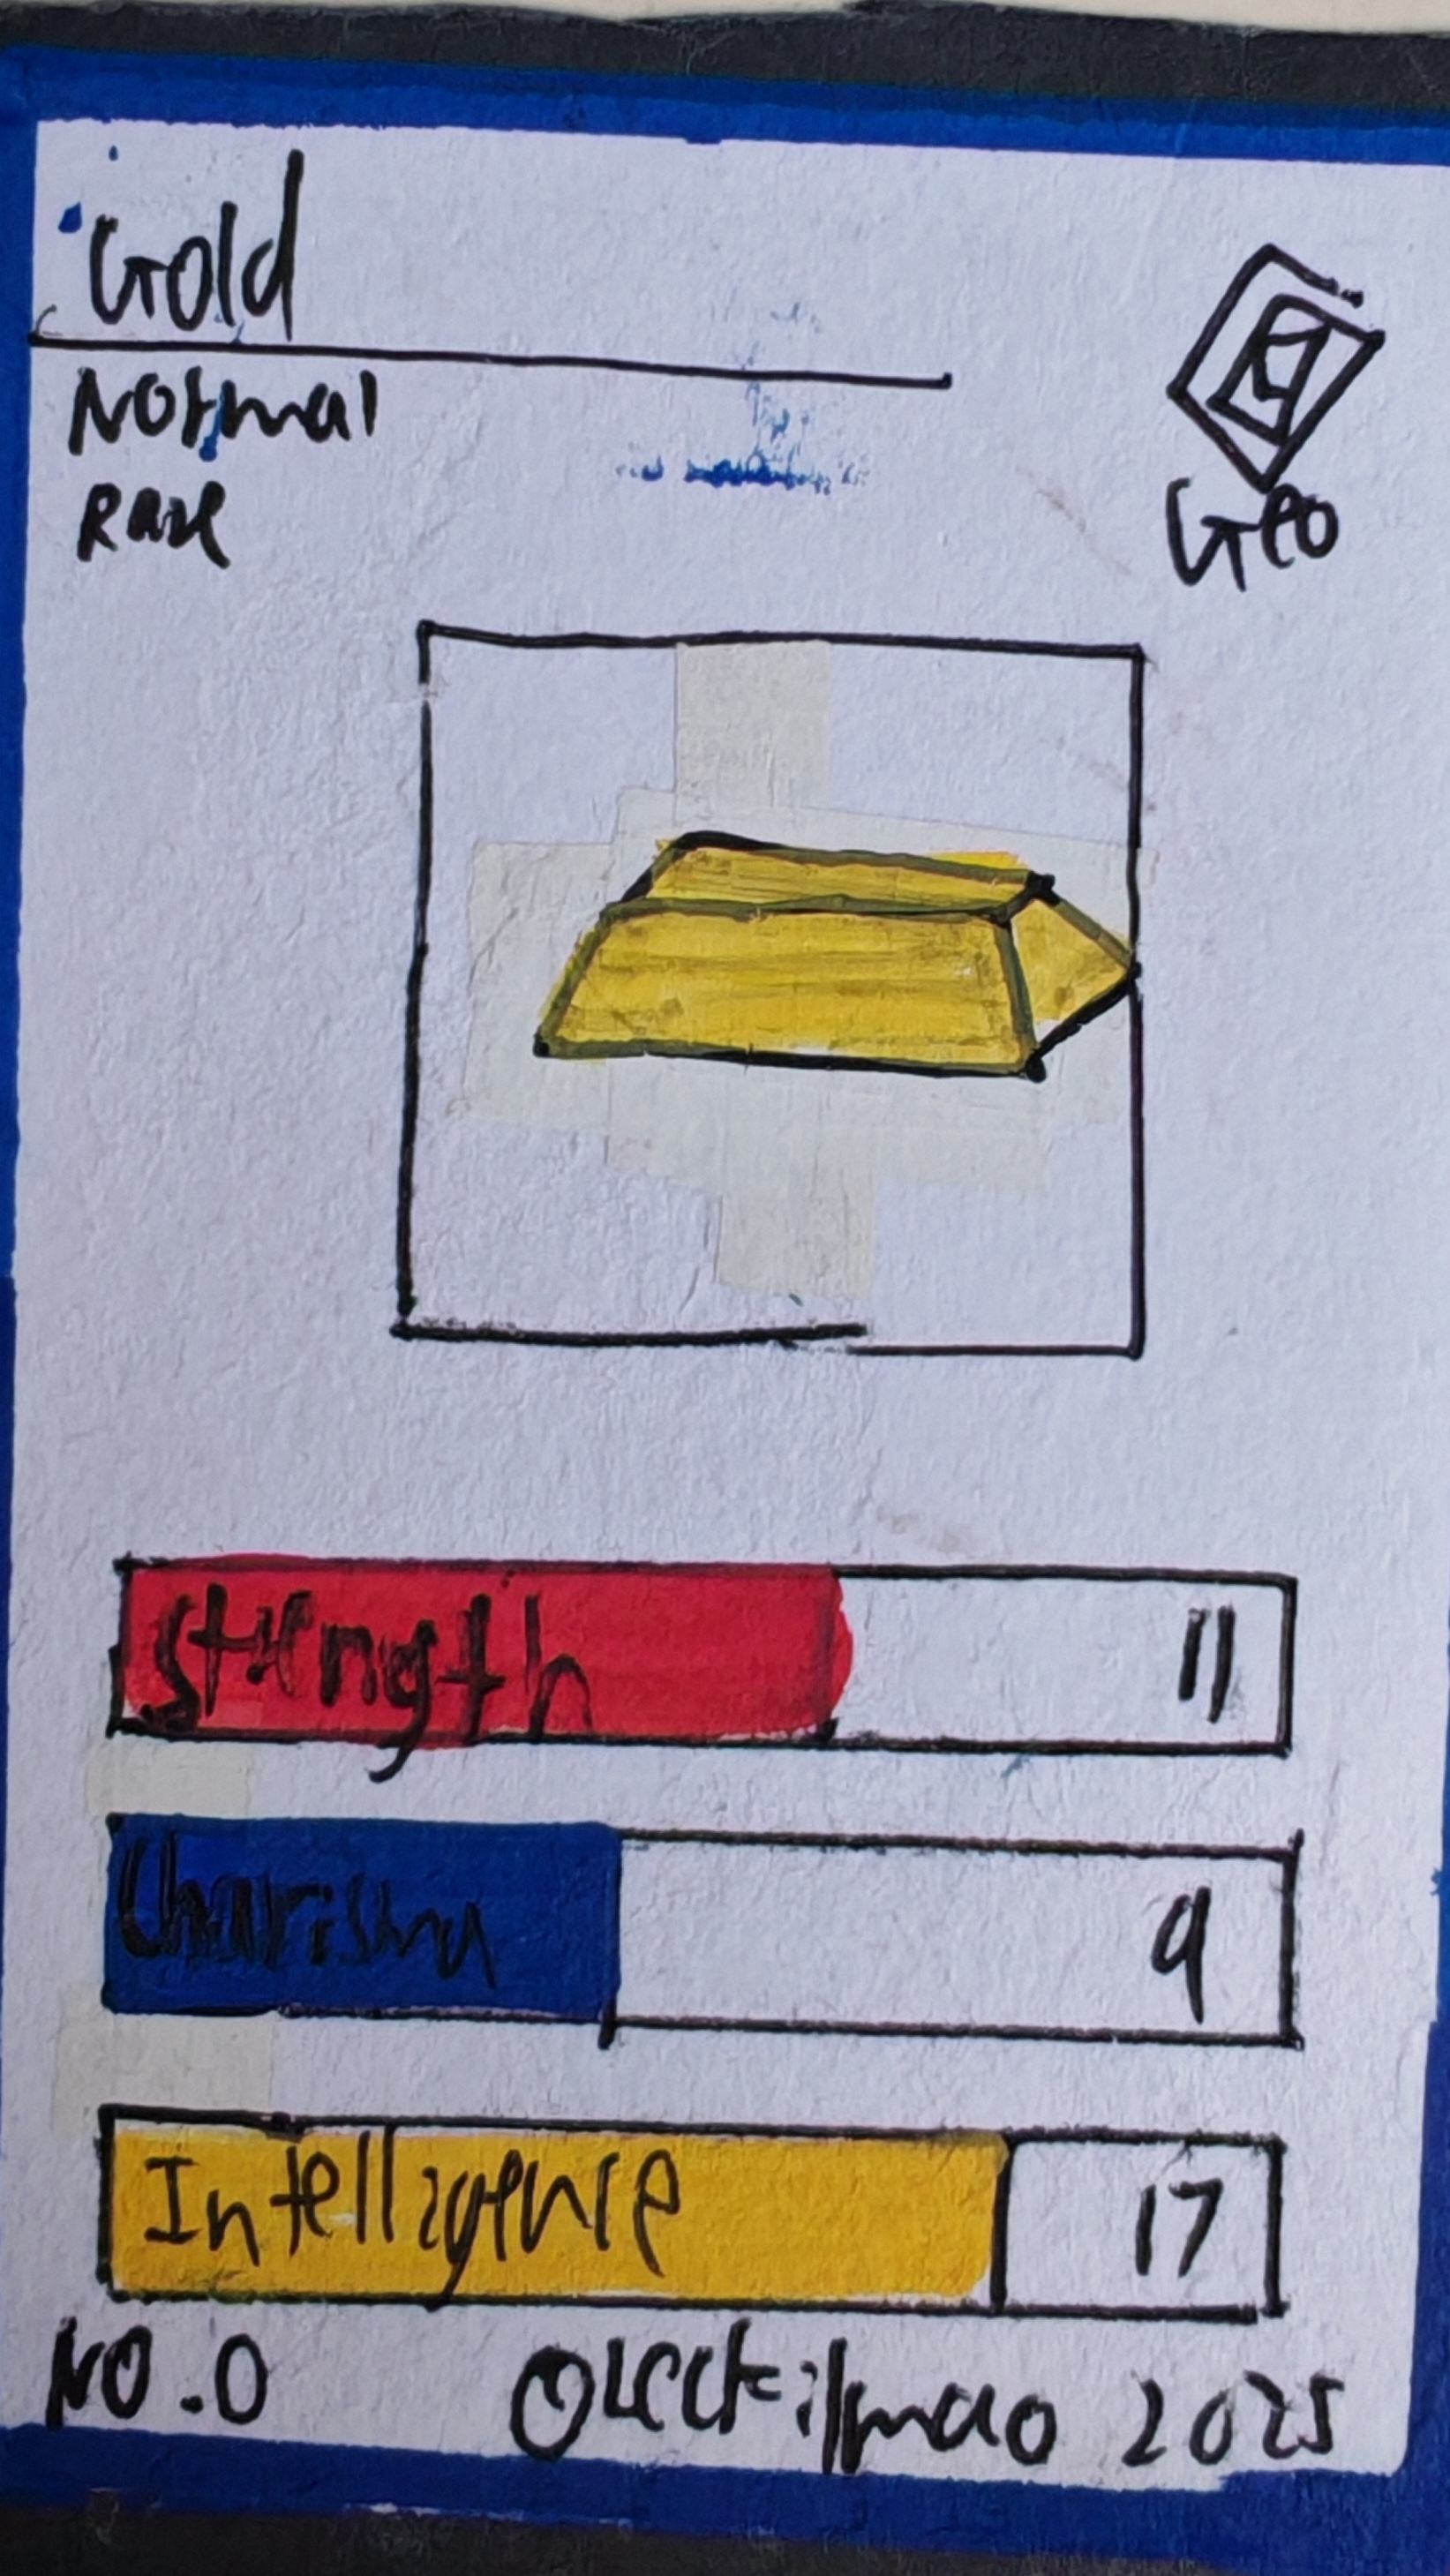 Gold
Normal
Rare
Geo
Strength
11
Charisma
9
Intelligence
17
NO.0
2025